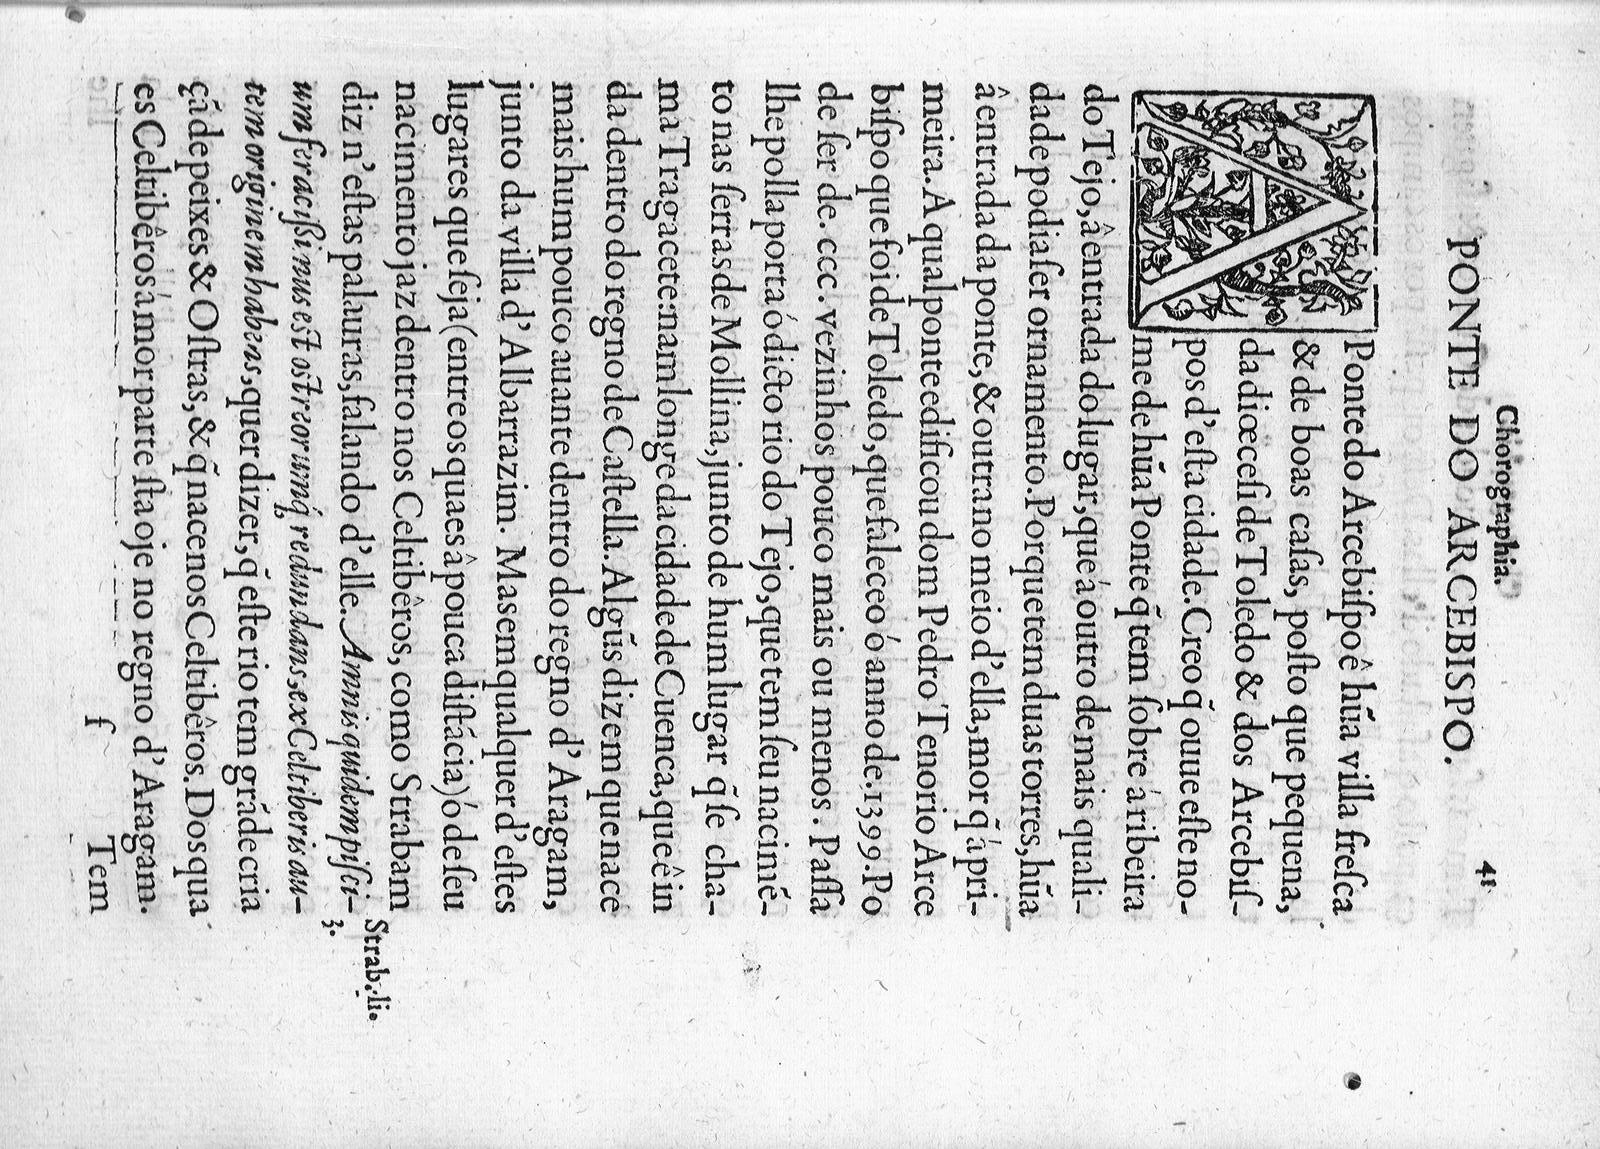 Chorographia. 41
PONTE DO ARCEBISPO.
A Ponte do Arcebiſpo ê hũa villa freſca
& de boas caſas, poſto que pequena,
da diœceſi de Toledo & dos Arcebiſ-
pos d'eſta cidade. Creo q̃ ouue eſte no-
me de hũa Ponte q̃ tem ſobre á ribeira
do Tejo, â entrada do lugar, que á outro de mais quali-
dade podia ſer ornamento. Porque tem duas torres, hũa
â entrada da ponte, & outra no meio d'ella, mor q̃ á pri-
meira. A qual ponte edificou dom Pedro Tenorio Arce
biſpo que foi de Toledo, que faleceo ó anno de .1399. Po
de ſer de .ccc. vezinhos pouco mais ou menos. Paſſa
lhe polla porta ó dicto rio do Tejo, que tem ſeu nacimẽ-
to nas ſerras de Mollina, junto de hum lugar q̃ ſe cha-
ma Tragacete: nam longe da cidade de Cuenca, que ê in
da dentro do regno de Caſtella. Algũs dizem que nace
mais hum pouco auante dentro do regno d'Aragam,
junto da villa d'Albarrazim. Mas em qualquer d'eſtes
lugares que ſeja (entre os quaes â pouca diſtãcia) ó de ſeu
nacimento jaz dentro nos Celtibêros, como Strabam
diz n'eſtas palauras, falando d'elle. Amnis quidem piſci-
um feracißimus est ostreorumq́ redundans, ex Celtiberis au-
tem originem habens, quer dizer, q̃ eſte rio tem grãde cria
çã de peixes & Oſtras, & q̃ nace nos Celtibêros. Dos qua
es Celtibêros á mor parte ſta oje no regno d'Aragam.
f Tem
Strab. li.
3.